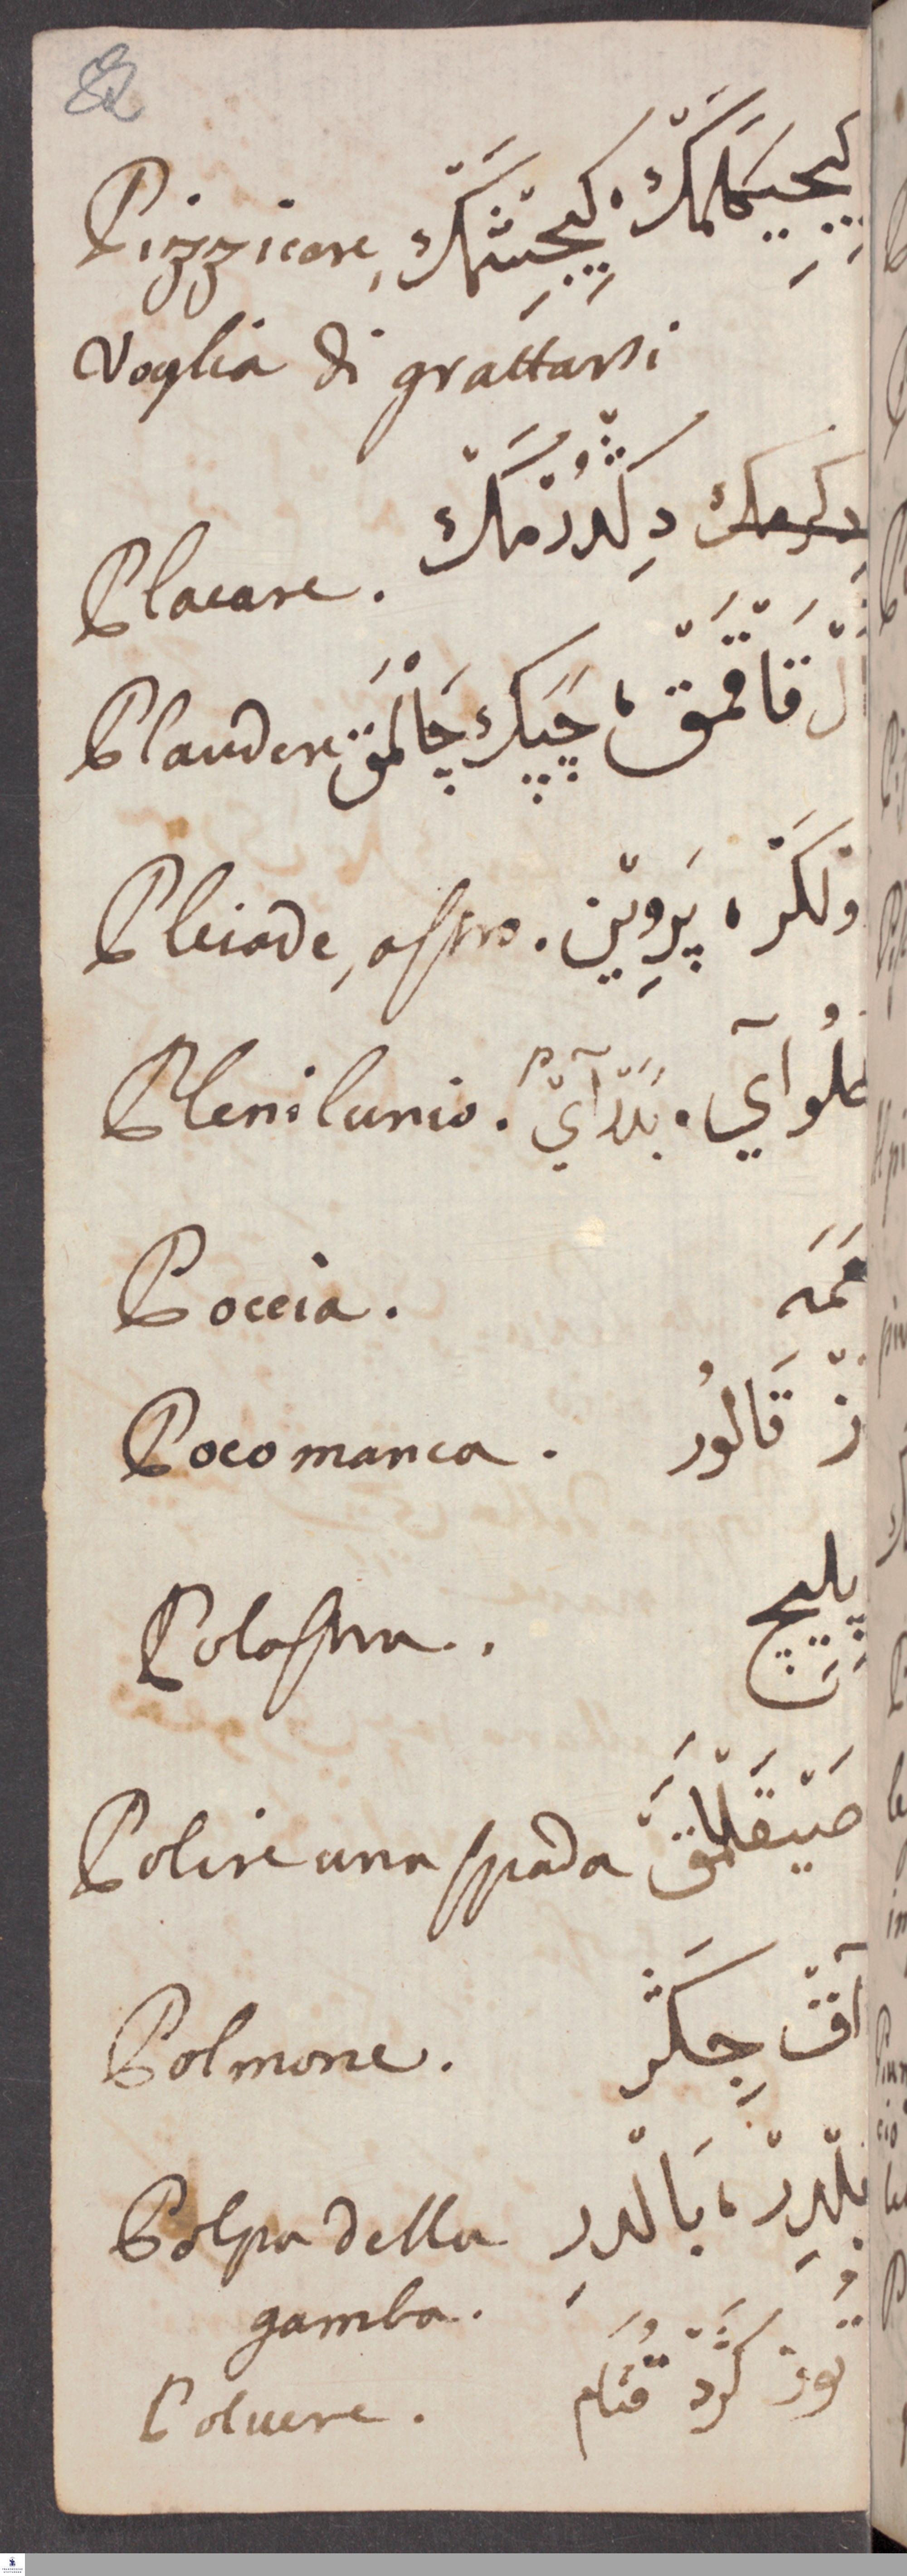 Pizzicare, كِيجِيكلَمَكْ، كِيجِشمَكْ
Voglia di grattarsi
Placare. دِكلدُرْمَكْ
Plaudere اَلْ قَاقْمَقْ، چَپَك چَالْمَقْ
Pleiade, astro. وُلكَرْ، پَروِينْ
Plenilunio. طُلُوآي. بَدَرْآيْ
Poccia. مَمَه
Poco manca. آزْ قَالُور
Polastra. پِلِيچ
Polire una spada صَيْقَلْلَمَقْ
Polmone. آقْ جِكَرْ
Polpa della بَلْدِرْ، بَالْدِر
gamba.
Poluere. تُوز